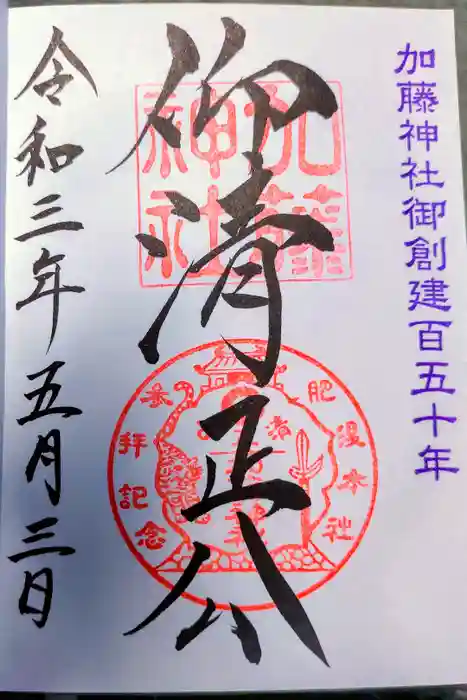 加藤神社御創建百五十年
仰清正公
加藤
神社
参拝記念
令和三年五月三日